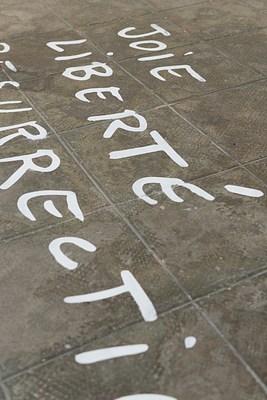 Joie
LiBERTÉ
SURRECTiO